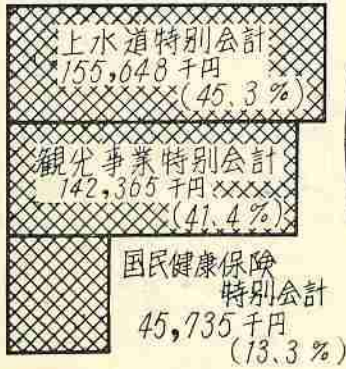 上水道特別会計
155,648千円
(45.3%)
観光事業特別会計
142,365千円
(41.4%)
国民健康保険
特別会計
45,735千円
(13.3%)